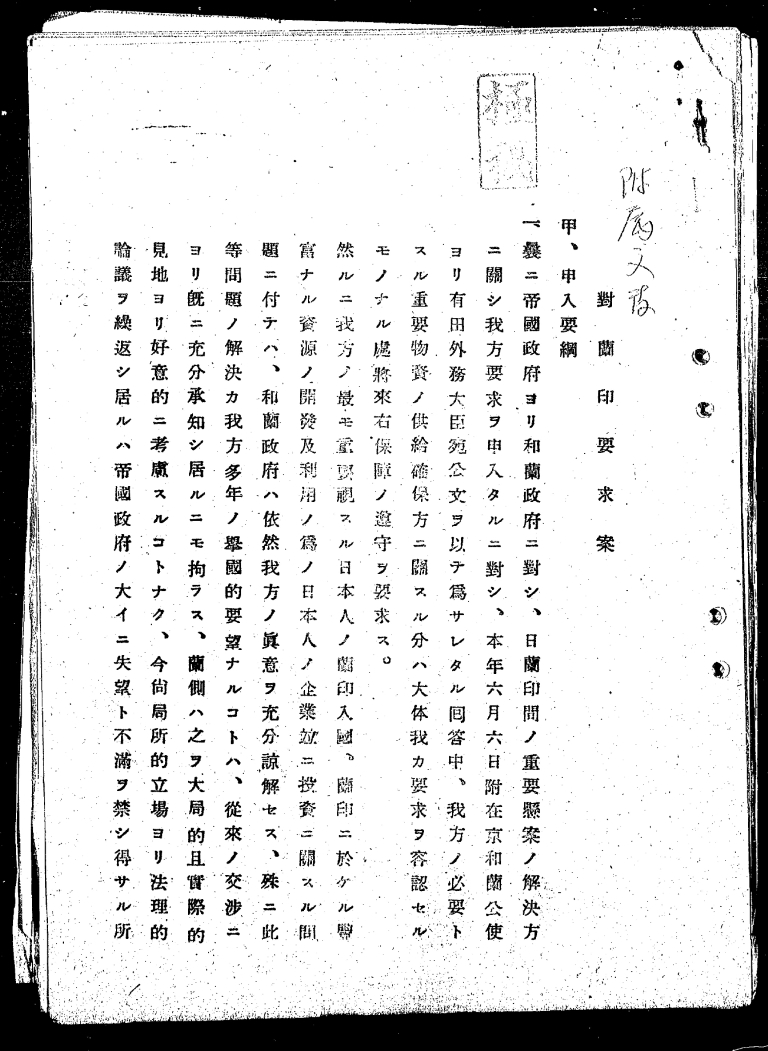 極秘
附属文書
對蘭印要求案
甲、申入要綱
一、曩ニ帝國政府ヨリ和蘭政府ニ對シ、日蘭印間ノ重要懸案ノ解決方
ニ關シ我方要求ヲ申入タルニ對シ、本年六月六日附在京和蘭公使
ヨリ有田外務大臣宛公文ヲ以テ爲サレタル囘答中、我方ノ必要ト
スル重要物資ノ供給確保方ニ關スル分ハ大体我カ要求ヲ容認セル
モノナル處將來右保障ノ遵守ヲ要求ス。
然ルニ我方ノ最モ重要視スル日本人ノ蘭印入國、蘭印ニ於ケル豐
富ナル資源ノ開發及利用ノ爲ノ日本人ノ企業竝ニ投資ニ關スル問
題ニ付テハ、和蘭政府ハ依然我方ノ眞意ヲ充分諒解セス、殊ニ此
等問題ノ解決カ我方多年ノ擧國的要望ナルコトハ、從來ノ交渉ニ
ヨリ既ニ充分承知シ居ルニモ拘ラス、蘭側ハ之ヲ大局的且實際的
見地ヨリ好意的ニ考慮スルコトナク、今尙局所的立場ヨリ法理的
論議ヲ繰返シ居ルハ帝國政府ノ大イニ失望ト不滿ヲ禁シ得サル所